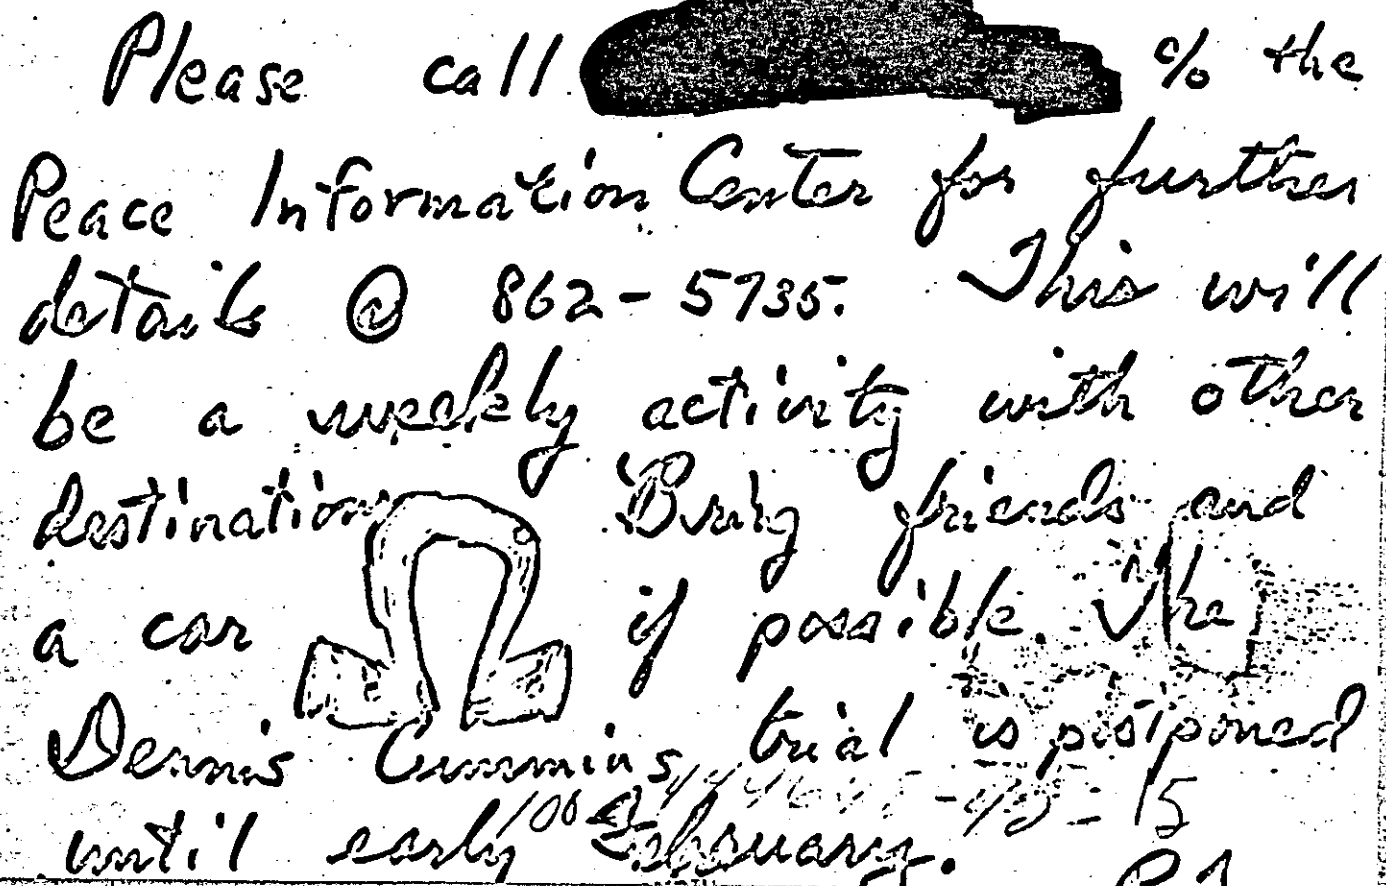 Please call c/o the
Peace Information Center for further
details @ 862-5735. This will
be a weekly activity with other
destinations Bring friends and
a car if possible. The
Dennis Cummins trial is postponed
until early February.